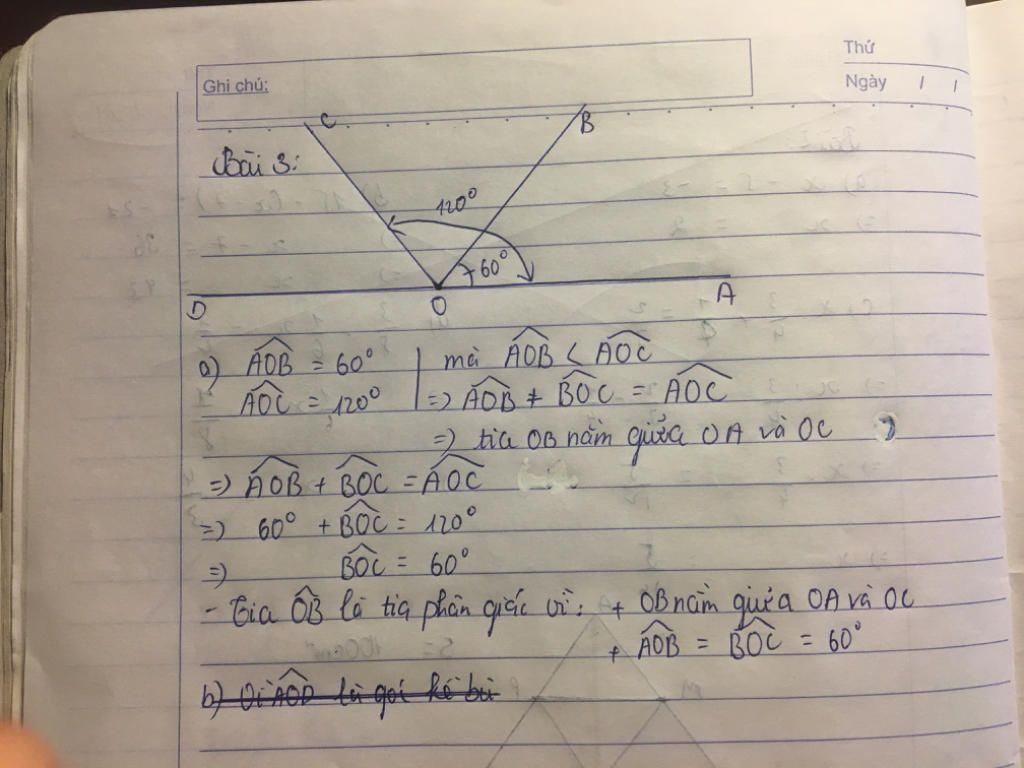 Thứ
Ghi chú:
Ngày / /
C
B
Bài 3:
120°
60°
D
O
A
a) AOB = 60° | mà AOB < AOC
AOC = 120° | => AOB + BOC = AOC
=> tia OB nằm giữa OA và OC
=> AOB + BOC = AOC
=> 60° + BOC = 120°
=> BOC = 60°
- Tia OB là tia phân giác vì: + OB nằm giữa OA và OC
+ AOB = BOC = 60°
b) Vì AOD là góc kề bù